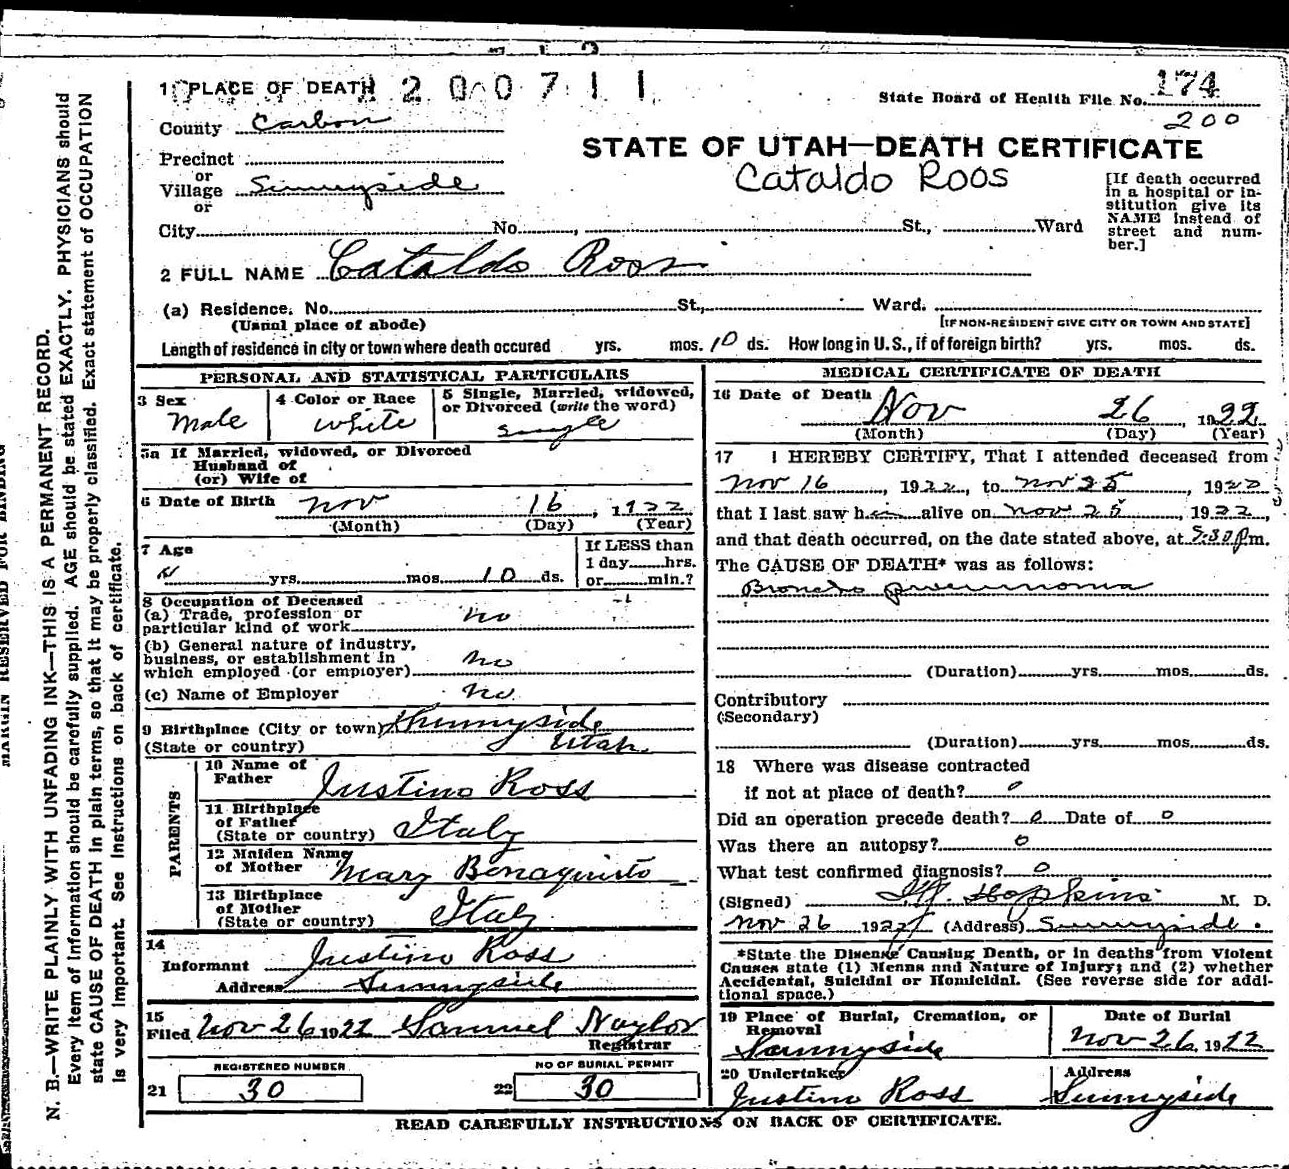 1 PLACE OF DEATH 200711
State Board of Health File No. 174
200
County Carbon
STATE OF UTAH—DEATH CERTIFICATE
Cataldo Roos
Precinct
or
Village Sunnyside
or
City No. , St., Ward
[If death occurred
in a hospital or in-
stitution give its
NAME instead of
street and num-
ber.]
2 FULL NAME Cataldo Roos
(a) Residence. No. St., Ward.
(Usual place of abode)
[IF NON-RESIDENT GIVE CITY OR TOWN AND STATE]
Length of residence in city or town where death occured yrs. mos. 10 ds. How long in U.S., if of foreign birth? yrs. mos. ds.
PERSONAL AND STATISTICAL PARTICULARS
3 Sex
Male
4 Color or Race
White
5 Single, Married, widowed,
or Divorced (write the word)
Single
5a If Married, widowed, or Divorced
Husband of
(or) Wife of
6 Date of Birth Nov 16, 1922
(Month) (Day) (Year)
7 Age
yrs. mos. 10 ds.
If LESS than
1 day hrs.
or min.?
8 Occupation of Deceased
(a) Trade, profession or
particular kind of work no
(b) General nature of industry,
business, or establishment in
which employed (or employer) no
(c) Name of Employer no
9 Birthplace (City or town) Sunnyside
(State or country) Utah
PARENTS
10 Name of
Father Justino Ross
11 Birthplace
of Father
(State or country) Italy
12 Maiden Name
of Mother Mary Bonaquisto
13 Birthplace
of Mother
(State or country) Italy
14
Informant Justino Ross
Address Sunnyside
15
Filed Nov 26 1922 Samuel Naylor
Registrar
REGISTERED NUMBER
21 30
NO OF BURIAL PERMIT
22 30
MEDICAL CERTIFICATE OF DEATH
16 Date of Death Nov 26, 1922
(Month) (Day) (Year)
17 I HEREBY CERTIFY, That I attended deceased from
Nov 16, 1922, to Nov 25, 1922
that I last saw him alive on Nov 25, 1922,
and that death occurred, on the date stated above, at 5:30 P.m.
The CAUSE OF DEATH* was as follows:
Broncho pneumonia
(Duration) yrs. mos. ds.
Contributory
(Secondary)
(Duration) yrs. mos. ds.
18 Where was disease contracted
if not at place of death? 0
Did an operation precede death? 0 Date of 0
Was there an autopsy? 0
What test confirmed diagnosis? 0
(Signed) Hopkins M. D.
Nov 26 1922 (Address) Sunnyside.
*State the Disease Causing Death, or in deaths from Violent
Causes state (1) Means and Nature of Injury; and (2) whether
Accidental, Suicidal or Homicidal. (See reverse side for addi-
tional space.)
19 Place of Burial, Cremation, or
Removal
Sunnyside
Date of Burial
Nov 26, 1922
20 Undertaker
Justino Ross
Address
Sunnyside
READ CAREFULLY INSTRUCTIONS ON BACK OF CERTIFICATE.
MARGIN RESERVED FOR BINDING
N. B.—WRITE PLAINLY WITH UNFADING INK—THIS IS A PERMANENT RECORD.
Every item of information should be carefully supplied. AGE should be stated EXACTLY. PHYSICIANS should
state CAUSE OF DEATH in plain terms, so that it may be properly classified. Exact statement of OCCUPATION
is very important. See Instructions on back of certificate.